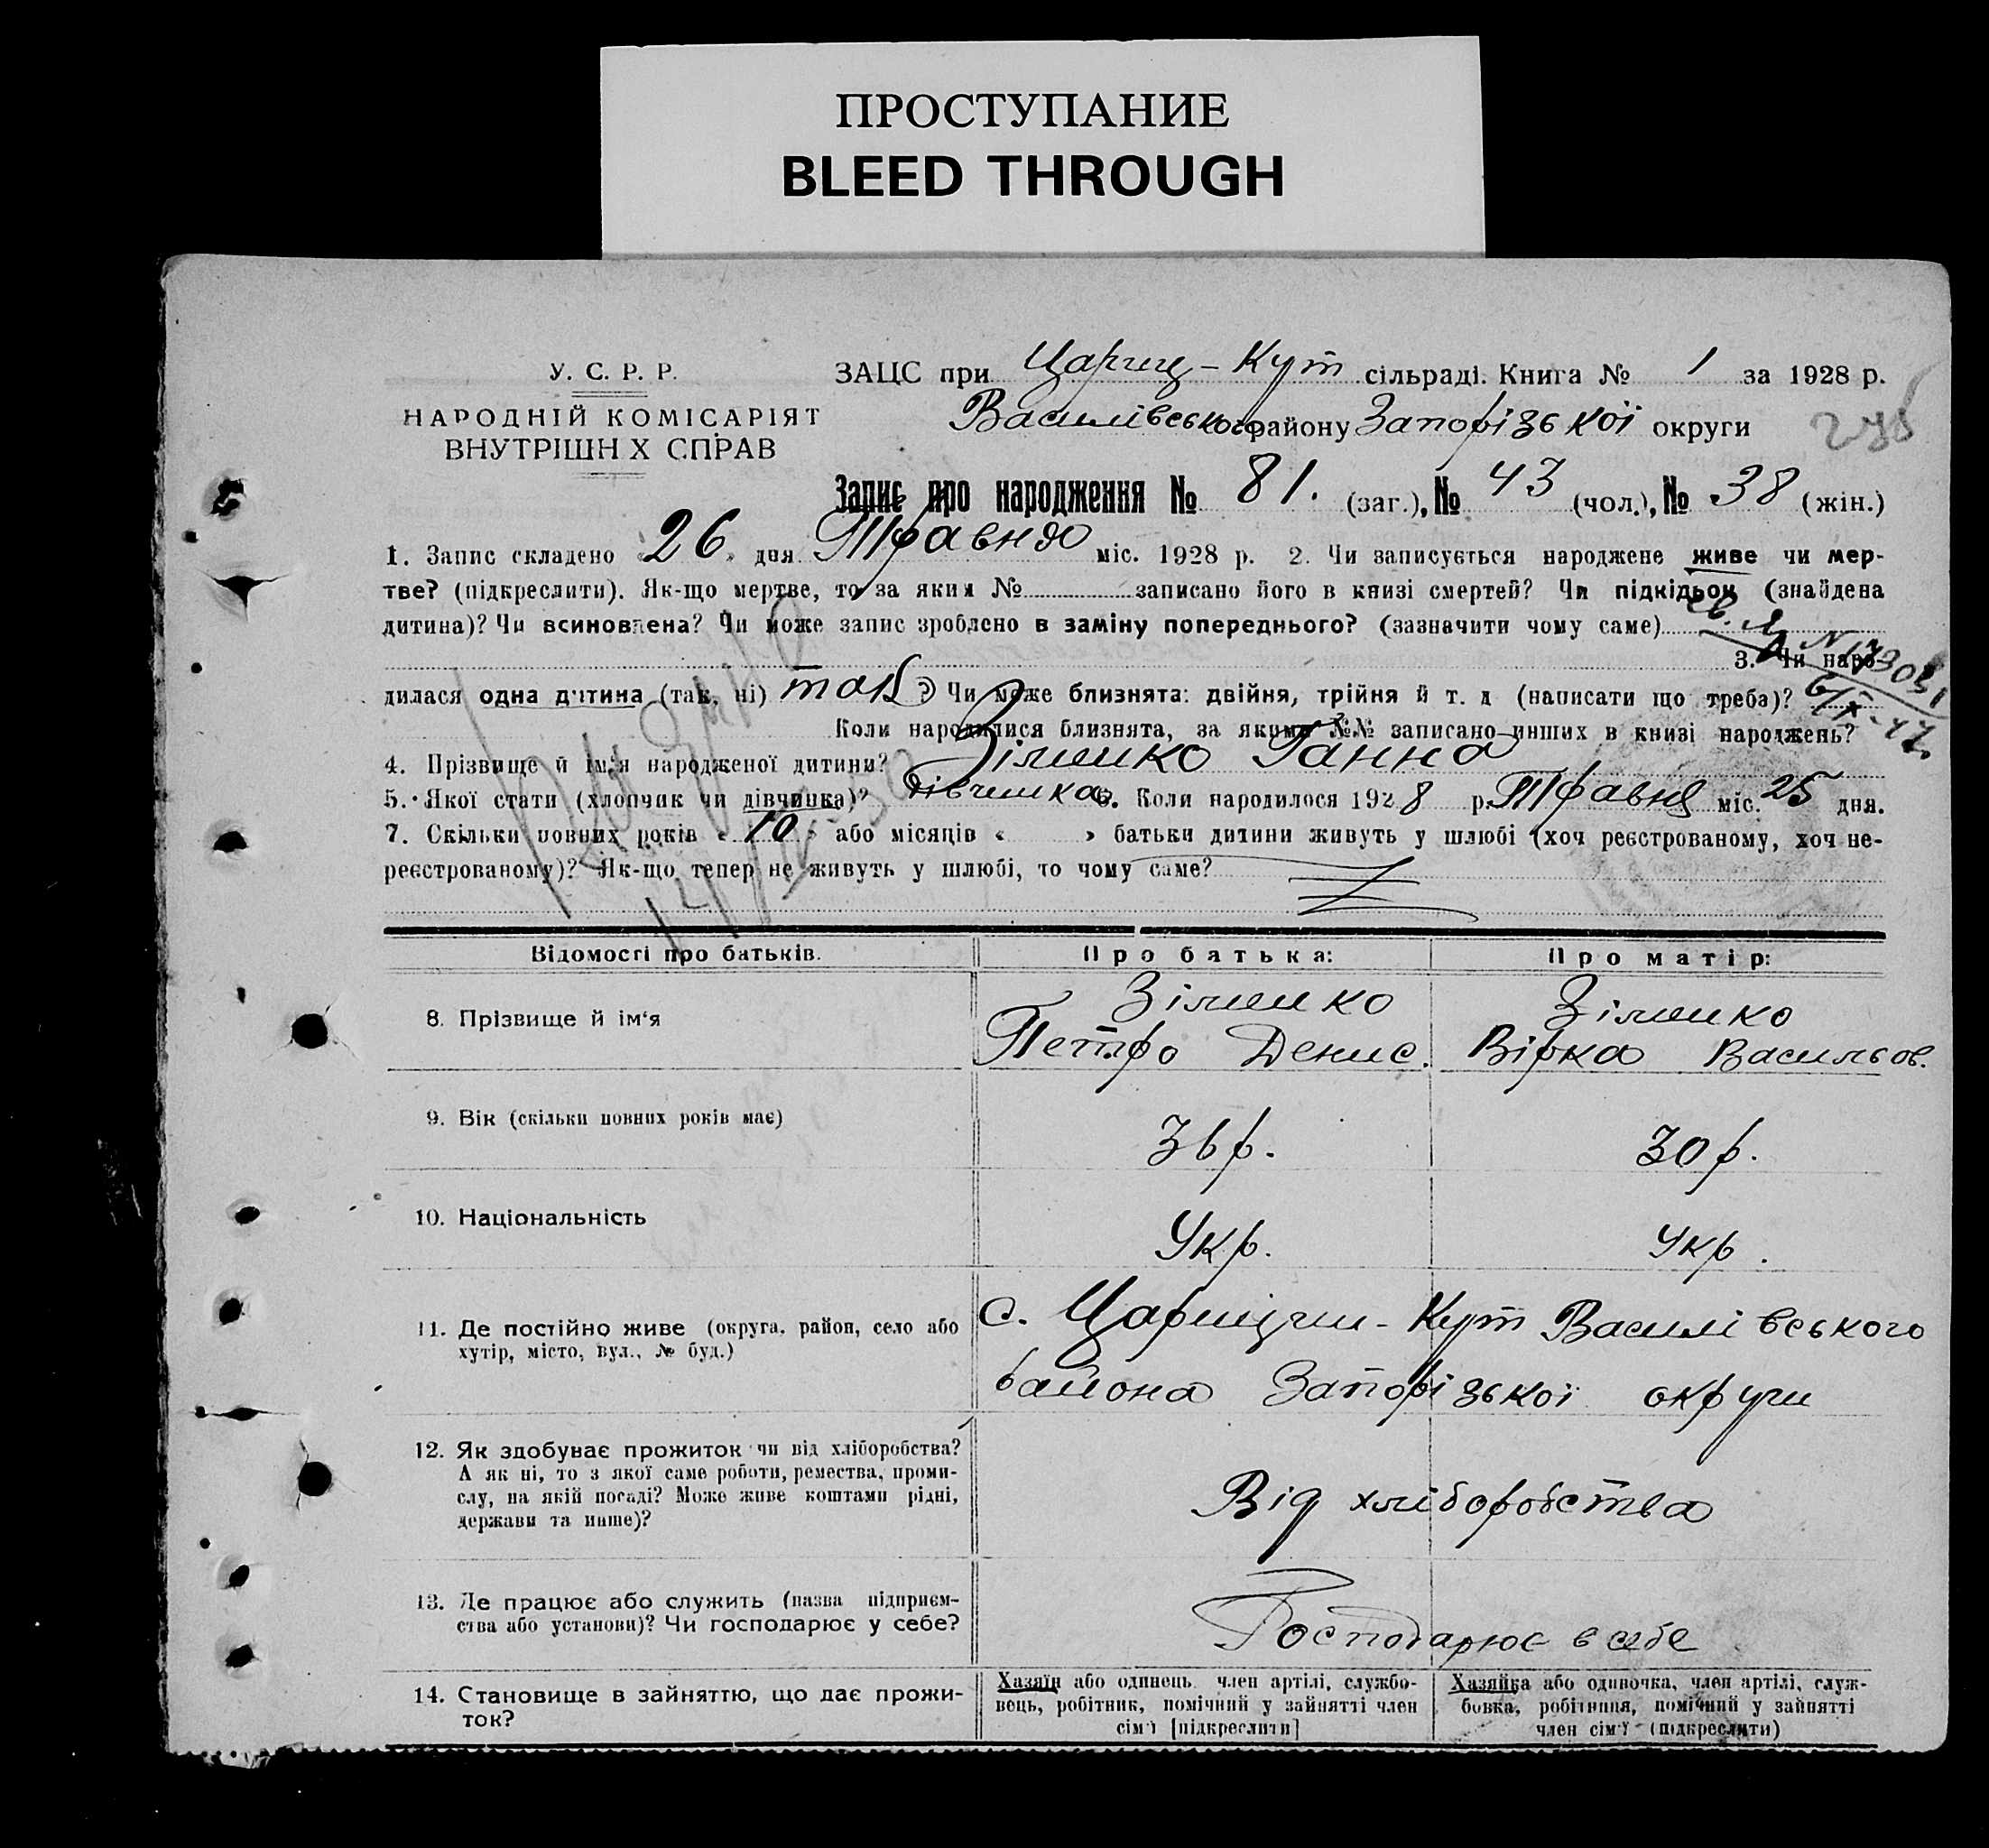 ПРОСТУПАНИЕ
BLEED THROUGH
У. С. Р. Р.
НАРОДНІЙ КОМІСАРІЯТ
ВНУТРІШН Х СПРАВ
ЗАЦС при Цариц-Кут сільраді. Книга № 1 за 1928 р.
Василівського району Запорізької округи
Запис про народження № 81. (заг.), № 43 (чол.), № 38 (жін.)
1. Запис складено «26» дня Травня міс. 1928 р. 2. Чи записується народжене живе чи мер-
тве? (підкреслити). Як-що мертве, то за яким № записано його в книзі смертей? Чи підкідьок (знайдена
дитина)? Чи всиновлена? Чи може запис зроблено в заміну попереднього? (зазначити чому саме)
3. Чи наро-
дилася одна дитина (так, ні) так? Чи може близнята: двійня, трійня й т. д (написати що треба)?
6/X-47
Коли народилися близнята, за якими №№ записано инших в книзі народжень?
4. Прізвище й ім'я народженої дитини? Зілинко Ганна
5. Якої стати (хлопчик чи дівчинка)? дівчинка 6. Коли народилося 1928 р. Травня міс. 25 дня.
7. Скільки повних років «10» або місяців « » батьки дитини живуть у шлюбі (хоч реєстрованому, хоч не-
реєстрованому)? Як-що тепер не живуть у шлюбі, то чому саме?
Відомості про батьків. Про батька: Про матір:
8. Прізвище й ім'я Зілинко Петро Денис. Зілинко Вірка Васильов.
9. Вік (скільки повних років має) 36 р. 30 р.
10. Національність Укр. Укр.
11. Де постійно живе (округа, район, село або
хутір, місто, вул., № буд.)
с. Царицин-Кут Василівського
района Запорізької округи
12. Як здобуває прожиток чи від хліборобства?
А як ні, то з якої саме роботи, ремества, проми-
слу, на якій посаді? Може живе коштами рідні,
держави та инше)?
Від хліборобства
13. Де працює або служить (назва підприєм-
ства або установи)? Чи господарює у себе?
Господарює в себе
14. Становище в зайняттю, що дає прожи-
ток?
Хазяїн або одинець член артілі, службо-
вець, робітник, помічний у зайнятті член
сім'ї [підкреслити]
Хазяйка або одиночка, член артілі, служ-
бовка, робітниця, помічний у зайнятті
член сім'ї (підкреслити)